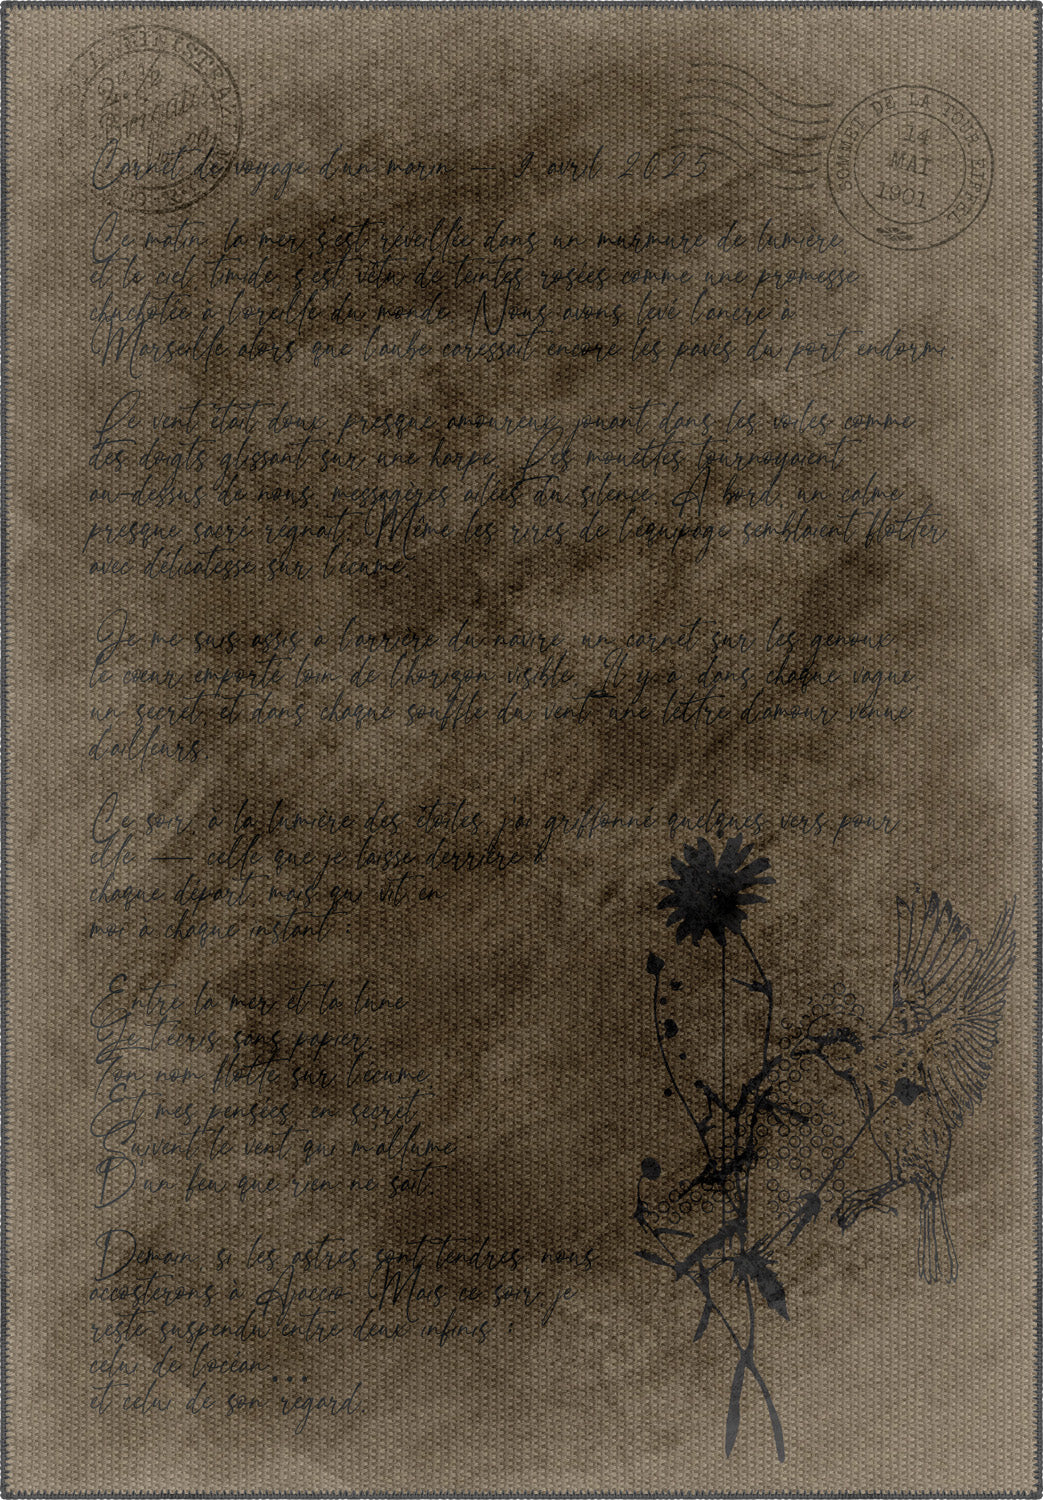 SOMMET DE LA TOUR EIFFEL
14
MAI
1901
Carnet de voyage d'un marin — 9 avril 2025
Ce matin, la mer s'est réveillée dans un murmure de lumière
et le ciel timide s'est vêtu de teintes rosées comme une promesse
chuchotée à l'oreille du monde. Nous avons levé l'ancre à
Marseille alors que l'aube caressait encore les pavés du port endormi.
Le vent était doux, presque amoureux, jouant dans les voiles comme
des doigts glissant sur une harpe. Les mouettes tournoyaient
au-dessus de nous, messagères ailées du silence. À bord, un calme
presque sacré régnait. Même les rires de l'équipage semblaient flotter
avec délicatesse sur l'écume.
Je me suis assis à l'arrière du navire, un carnet sur les genoux
le cœur emporté loin de l'horizon visible. Il y a dans chaque vague
un secret, et dans chaque souffle du vent, une lettre d'amour venue
d'ailleurs.
Ce soir, à la lumière des étoiles, j'ai griffonné quelques vers pour
elle — celle que je laisse derrière à
chaque départ, mais qui vit en
moi à chaque instant :
Entre la mer et la lune
Je t'écris sans papier,
Ton nom flotte sur l'écume
Et mes pensées, en secret,
Suivent le vent qui m'allume
D'un feu que rien ne sait.
Demain, si les astres sont tendres, nous
accosterons à Ajaccio. Mais ce soir, je
reste suspendu entre deux infinis :
celui de l'océan...
et celui de son regard.